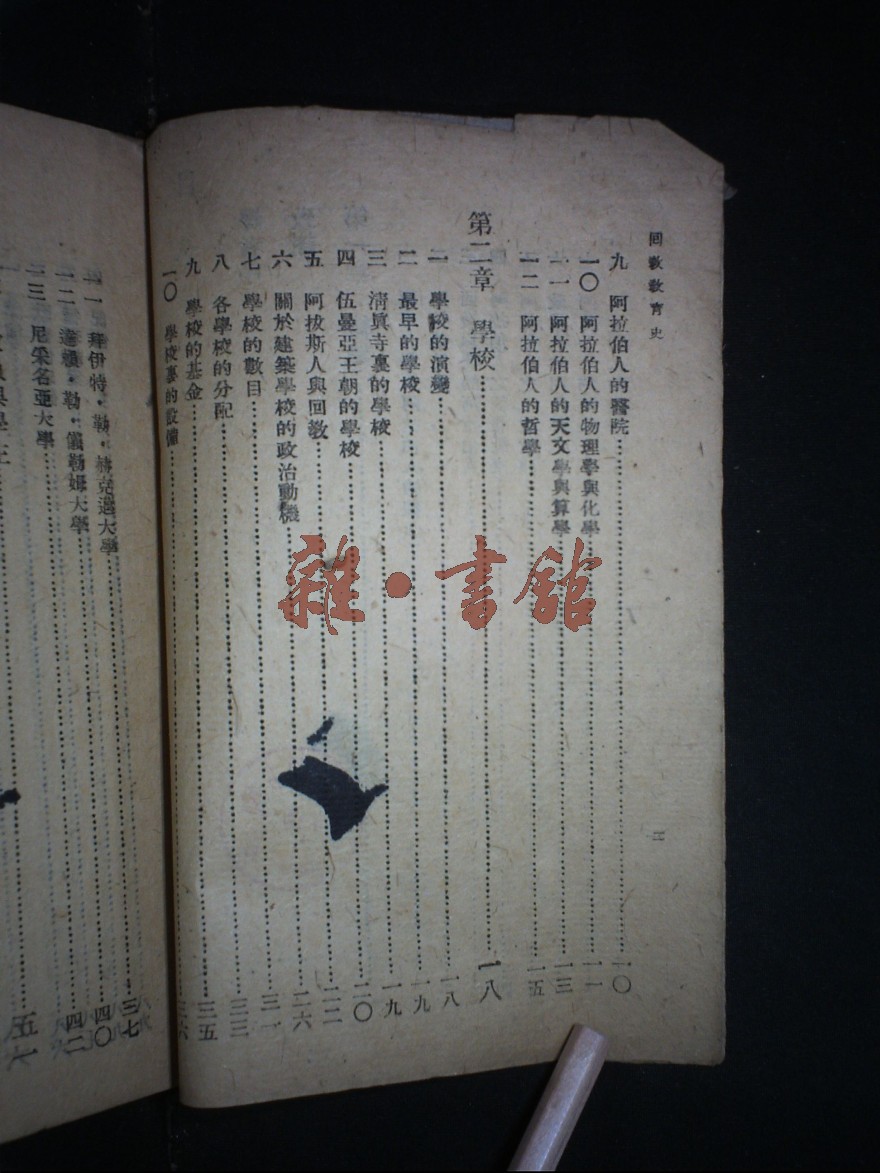 回教教育史
九 阿拉伯人的醫院……一〇
一〇 阿拉伯人的物理學與化學……一一
一一 阿拉伯人的天文學與算學……一三
一二 阿拉伯人的哲學……一五
第二章 學校……一八
一 學校的演變……一八
二 最早的學校……一九
三 清真寺裏的學校……一九
四 伍曼亞王朝的學校……二〇
五 阿拔斯人與回教……二二
六 關於建築學校的政治動機……二六
七 學校的數目……三一
八 各學校的分配……三三
九 學校的基金……三五
一〇 學校裏的設備……三六
一一 拜伊特·勒·赫克邁大學……三七
一二 達賴·勒·儀勒姆大學……四〇
一三 尼采名亞大學……四二
五一
雜·書館